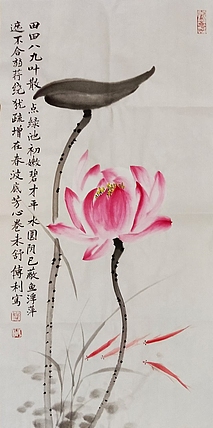 田田八九叶散点绿池初嫩碧才平水圆阴已蔽鱼浮萍
遮不合弱荇绕犹疏增在春波底芳心卷未舒 傅利写